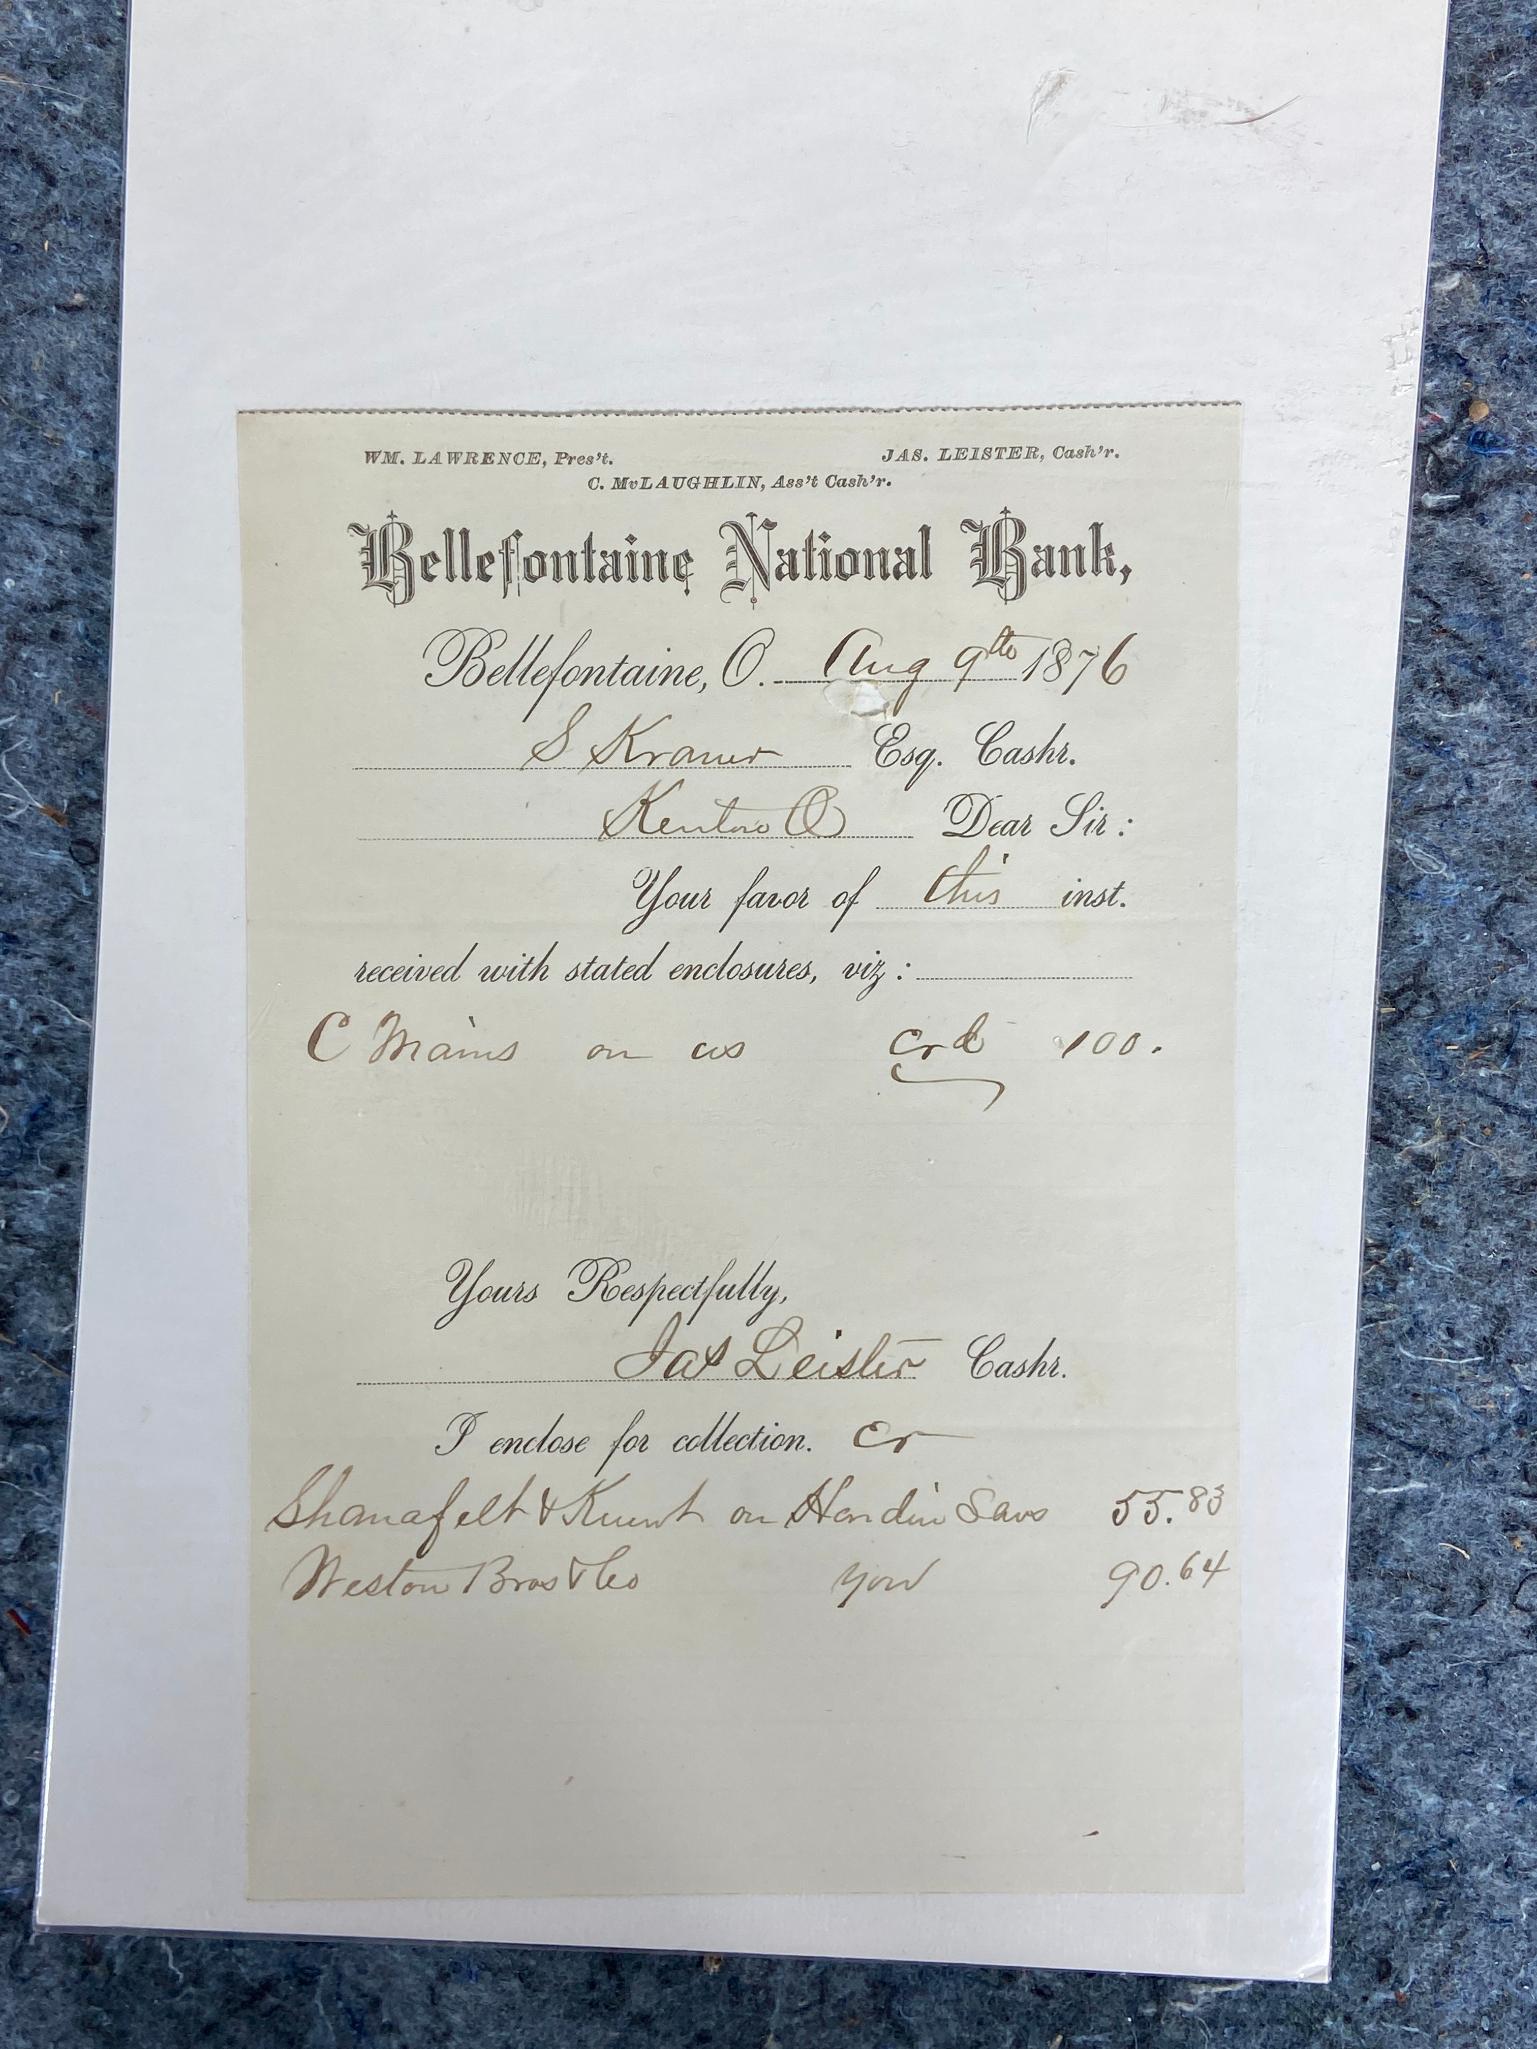 WM. LAWRENCE, Pres't. JAS. LEISTER, Cash'r.
C. McLAUGHLIN, Ass't Cash'r.
Bellefontaine National Bank,
Bellefontaine, O. Aug 9th 1876
S Kramer Esq. Cashr.
Kenton O Dear Sir:
Your favor of this inst.
received with stated enclosures, viz:
C Mains on us crd 100.
Yours Respectfully,
Jas Leister Cashr.
I enclose for collection. Cr
Shanafelt & on Hardin Savs 55.83
Weston Bros & Co you 90.64